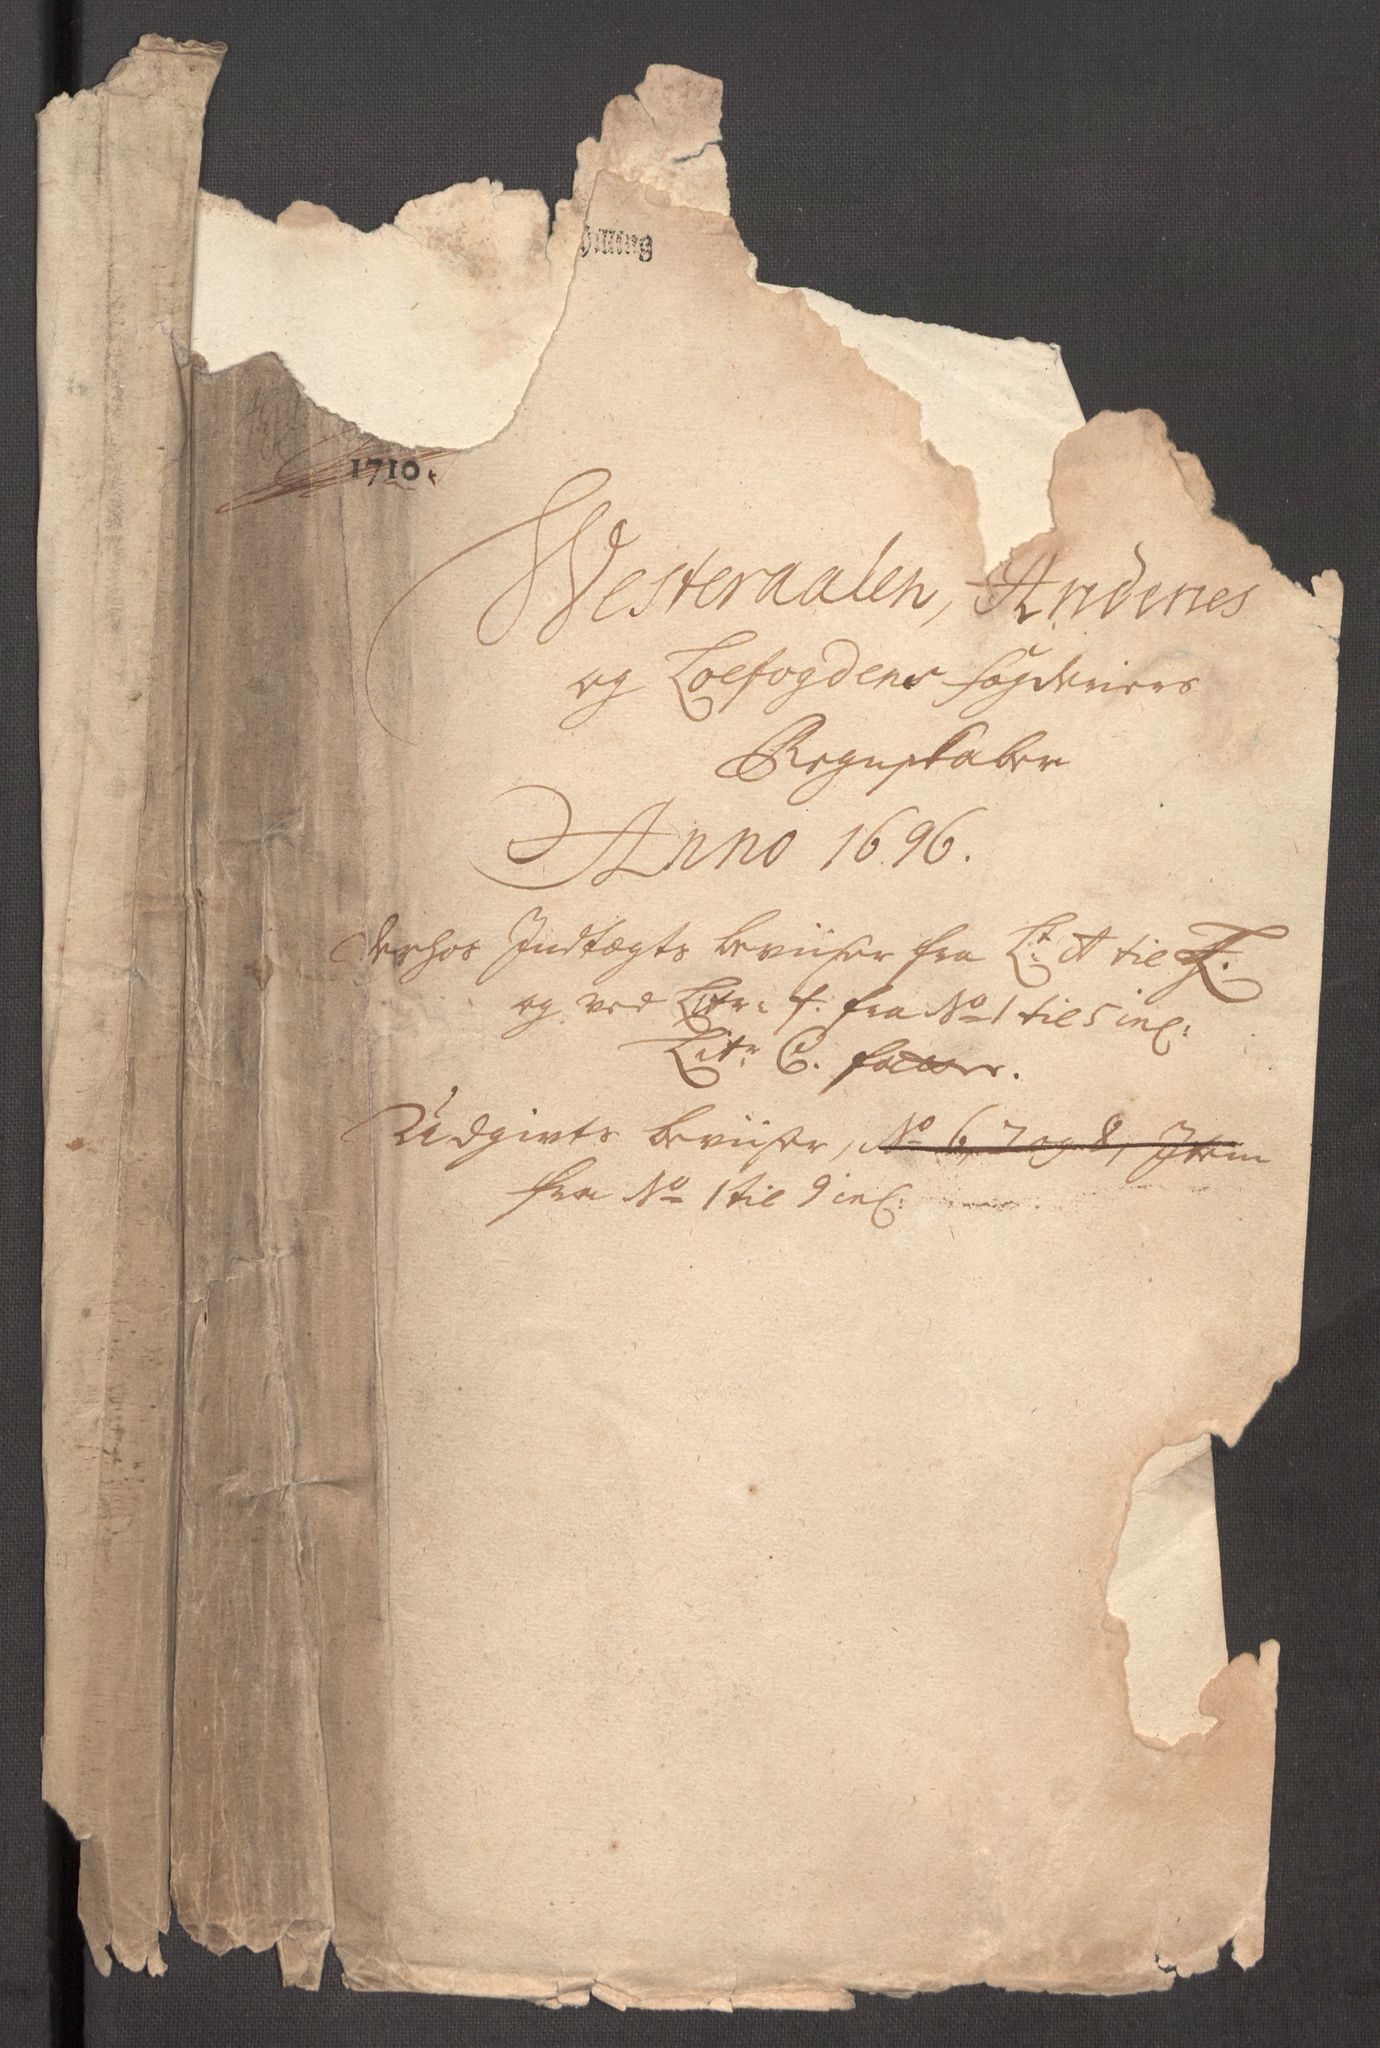 hilling
1710.
Westeraalen, Andenes
og Loefogdens fogderiers
Regnskaber
Anno 1696.
derhos Indtægts beviiser fra Lt: A til L.
og ved Litr: f. fra No 1 til 5 incl:
Litr C. fattes.
Udgivts beviiser, No 6, 7 og 8, Item
fra No 1 til 9 incl: